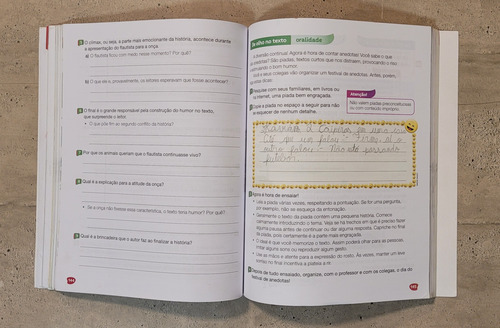 5 O clímax, ou seja, a parte mais emocionante da história, acontece durante
a apresentação do flautista para a onça.
a) O flautista ficou com medo nesse momento? Por quê?
b) O que ele e, provavelmente, os leitores esperavam que fosse acontecer?
6 O final é o grande responsável pela construção do humor no texto,
que surpreende o leitor.
• O que põe fim ao segundo conflito da história?
7 Por que os animais queriam que o flautista continuasse vivo?
8 Qual é a explicação para a atitude da onça?
• Se a onça não tivesse essa característica, o texto teria humor? Por quê?
9 Qual é a brincadeira que o autor faz ao finalizar a história?
144
De olho no texto oralidade
A diversão continua! Agora é hora de contar anedotas! Você sabe o que
são anedotas? São piadas, textos curtos que nos distraem, provocando o riso
e estimulando o bom humor.
Você e seus colegas vão organizar um festival de anedotas. Antes, porém,
Pesquise com seus familiares, em livros ou
na internet, uma piada bem engraçada.
Copie a piada no espaço a seguir para não
se esquecer de nenhum detalhe.
Atenção!
Não valem piadas preconceituosas
ou com conteúdo impróprio.
outro falou: - Não estô
Agora é hora de ensaiar!
• Leia a piada várias vezes, respeitando a pontuação. Se for uma pergunta,
por exemplo, não se esqueça da entonação.
• Geralmente o texto da piada contém uma pequena história. Comece
calmamente introduzindo o tema. Veja se há trechos em que é preciso fazer
alguma pausa antes de continuar ou dar alguma resposta. Capriche no final
da piada, pois certamente é a parte mais engraçada.
• O ideal é que você memorize o texto. Assim poderá olhar para as pessoas,
imitar alguns sons ou reproduzir algum gesto.
• Use as mãos e atente para a expressão do rosto. Às vezes, manter um leve
sorriso no final incentiva a plateia a rir.
Depois de tudo ensaiado, organize, com o professor e com os colegas, o dia do
festival de anedotas!
145